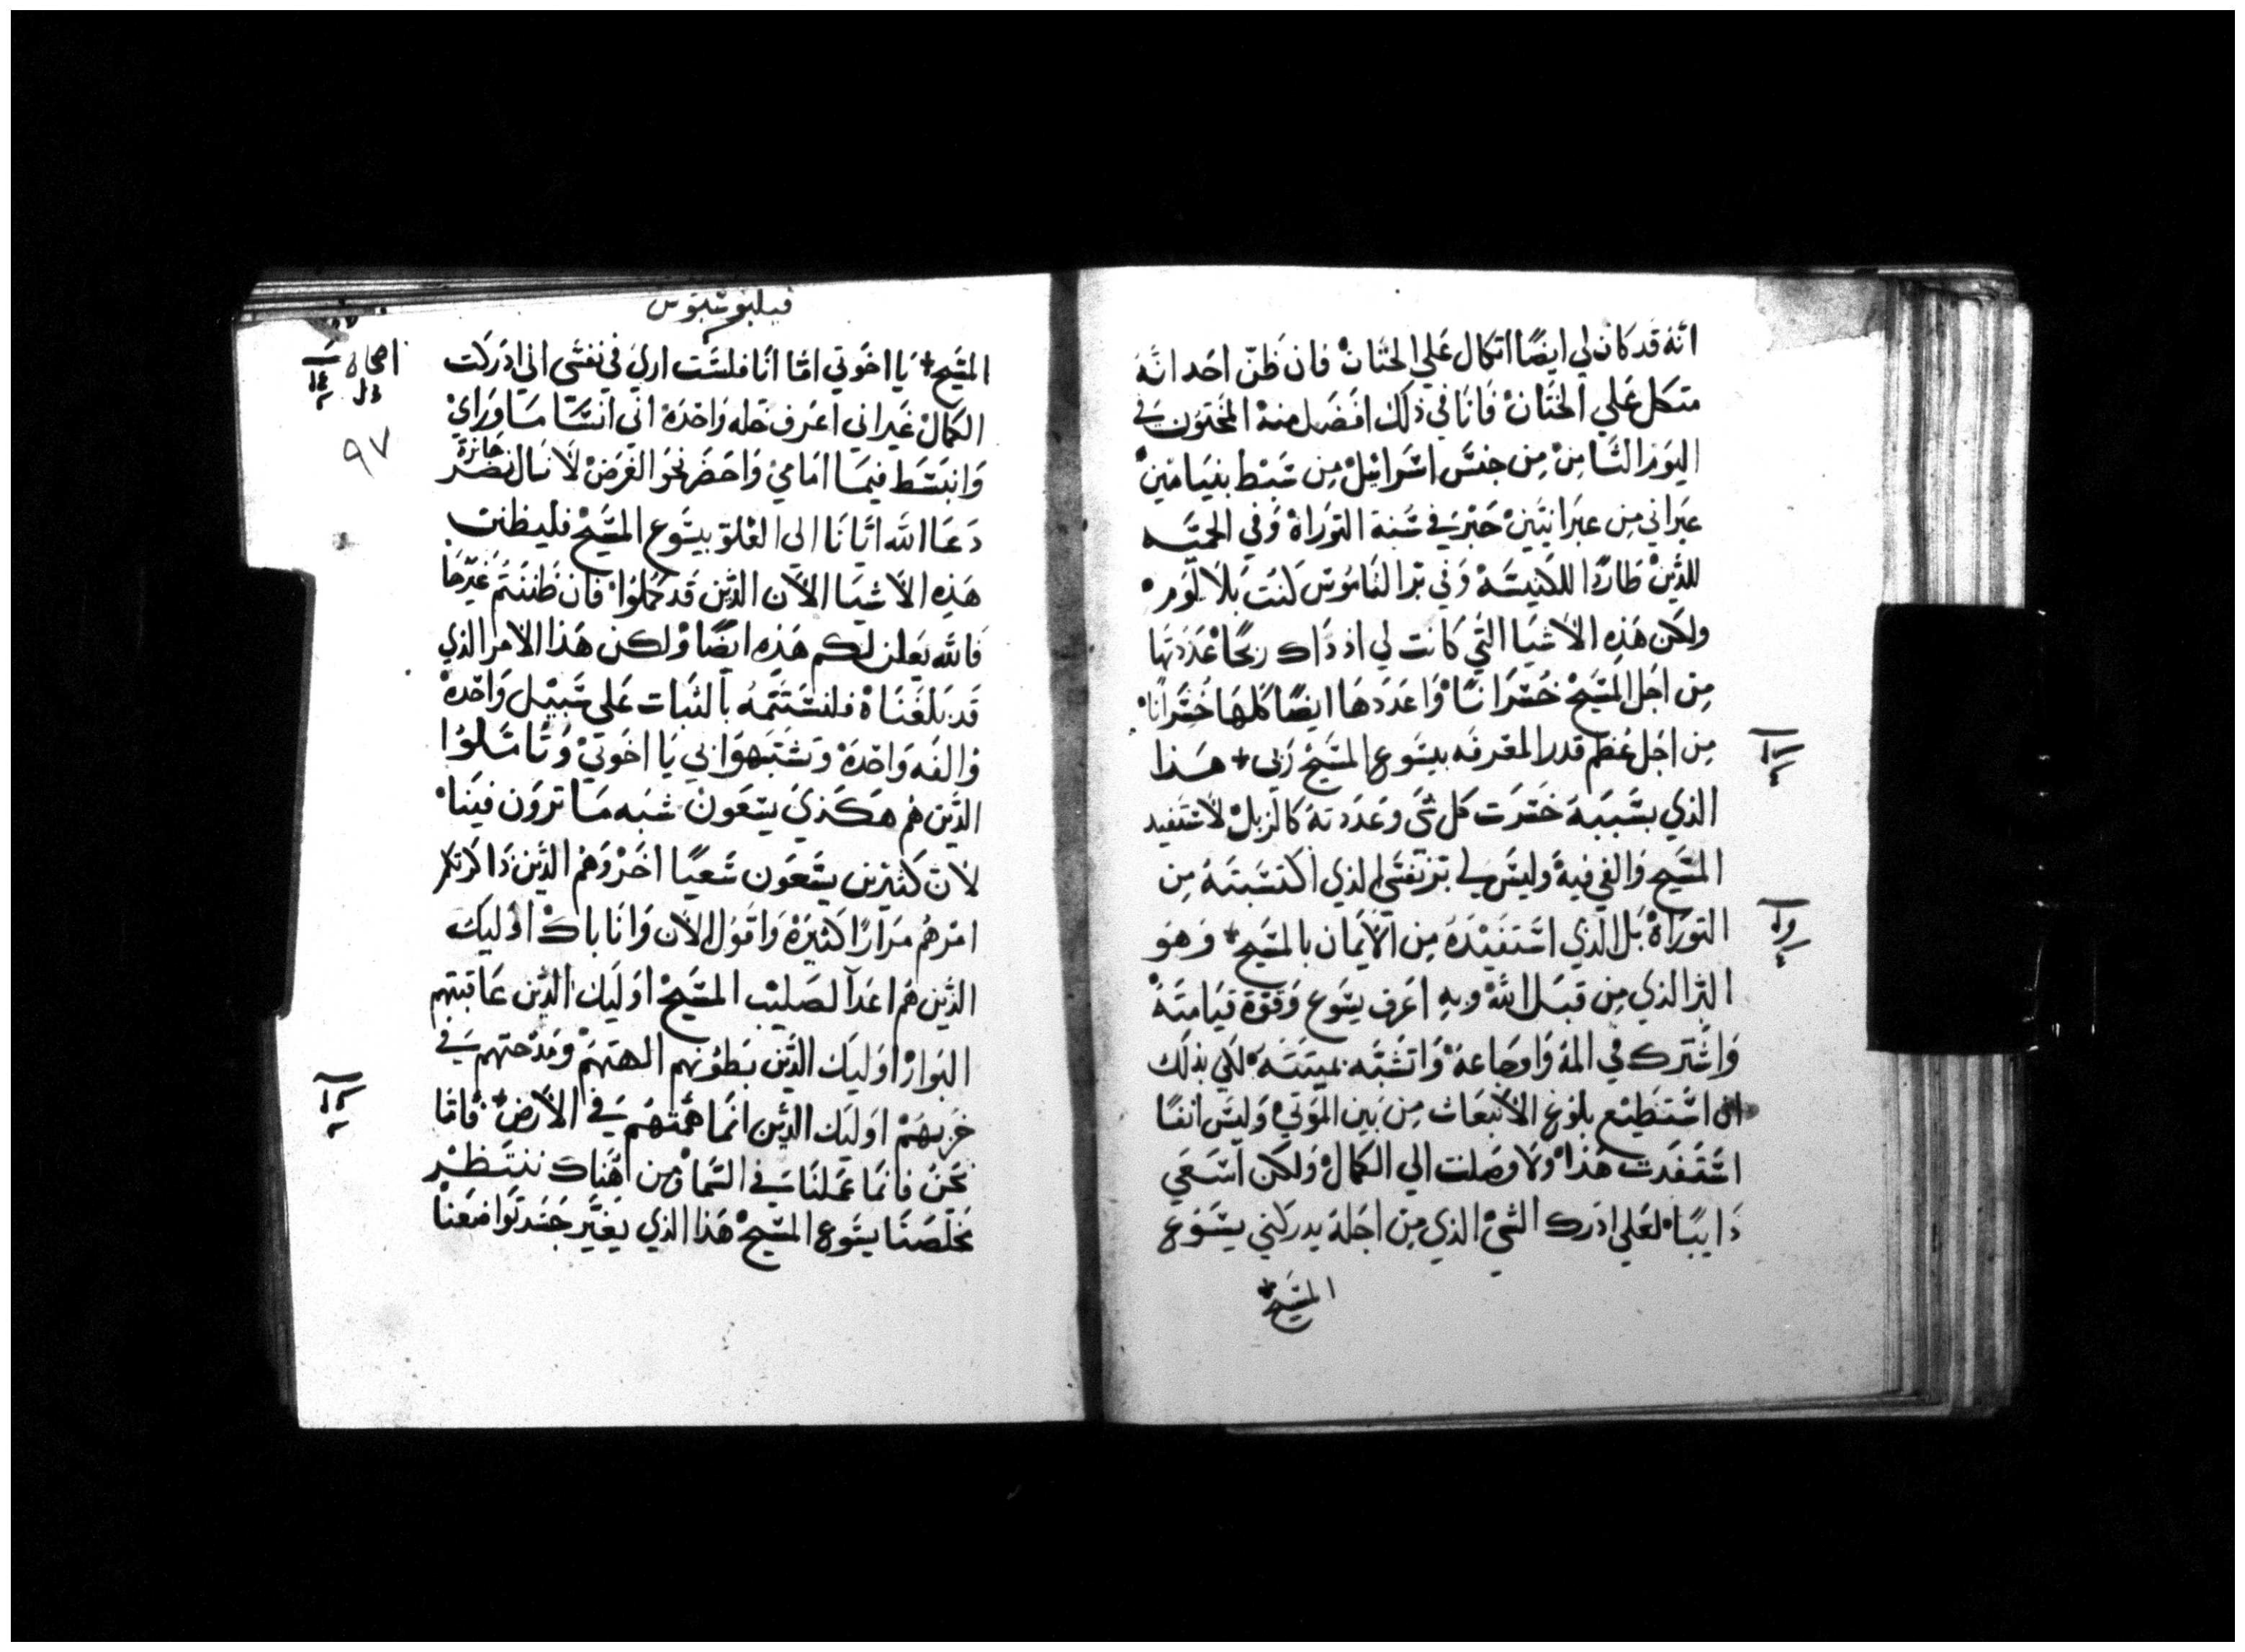 انه قد كان لي ايضًا اتكال علي الختان فان ظن احد انه
متكل علي الختان فانا في ذلك افضل منه المختون في
اليوم الثامن من جنس اسرائيل من سبط بنيامين
عبراني من عبرانيين حبر في سنة التوراة وفي الحميه
للدين طاردًا للكنيسة وفي بر الناموس كنت بلا لوم
ولكن هذه الاشيا التي كانت لي اذ ذاك ربحًا عددتها
من اجل المسيح خسرانًا واعددها ايضًا كلها خسرانًا
من اجل عظم قدر المعرفه بيسوع المسيح ربي + هذا
الذي بسببه خسرت كل شي وعددته كالزبل لاستفيد
المسيح والفي فيه وليس لي بر نفسي الذي اكتسبته من
التوراة بل الذي استفيده من الايمان بالمسيح + وهو
البر الذي من قبل الله وبه اعرف يسوع وقوة قيامته
واشترك في المه واوجاعه واتشبه بميتته لكي بذلك
ان استطيع بلوغ الانبعاث من بين الموتي وليس انفًا
استفدت هذا ولا وصلت الي الكمال ولكن اسعي
دايبًا لعلي ادرك الشي الذي من اجله يدركني يسوع
المسيح +
فيلبوسيوس
المسيح + يا اخوتي اما انا فلست اري في نفسي اني ادركت
الكمال غير اني اعرف خله واحده اني انسا ما وراي
وانبسط فيما امامي واحضر نحو الغرض لانال نصر
جائزة
دعا الله ايانا الي العلو بيسوع المسيح فليظنن
هذه الاشيا الان الذين قد كملوا فان ظننتم غيرها
فالله يعلن لكم هذه ايضًا ولكن هذا الامر الذي
قد بلغناه فلنستتمه بالثبات علي سبيل واحدة
والفه واحدة وتشبهوا بي يا اخوتي وتاملوا
الذين هم هكذي يسعون شبه ما ترون فينا
لان كثيرين يسعون سعيًا اخر وهم الذين ذاكرتكم
امرهم مرارًا كثيرة واقول الان وانا باك اوليك
الذين هم اعدا لصليب المسيح اوليك الذين عاقبتهم
البوار اوليك الذين بطونهم الهتهم ومدحتهم في
خزيهم اوليك الذين انما همتهم في الارض + فاما
نحن فانما عملنا في السما ومن هناك ننتظر
مخلصنا يسوع المسيح هذا الذي يغير جسد تواضعنا
٩٧